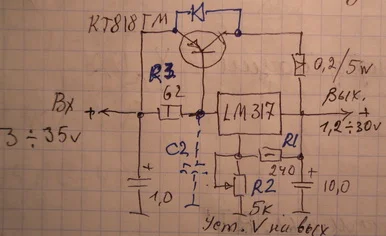 КТ818ГМ
R3
62
0,2/5w
Вх
+
LM317
Вых.
+
3÷35v
1,2÷30v
C2
R1
240
+
1,0
R2
5к
+
10,0
Уст. V на вых